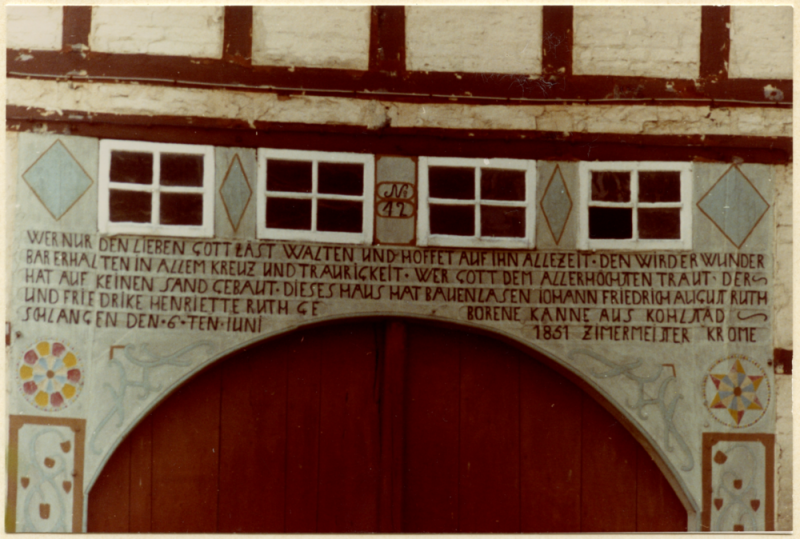 No
42
WER NUR DEN LIEBEN GOTT LÄST WALTEN UND HOFFET AUF IHN ALLEZEIT · DEN WIRD ER WUNDER
BAR ERHALTEN IN ALLEM KREUZ UND TRAURIGKEIT · WER GOTT DEM ALLERHÖCHSTEN TRAUT · DER
HAT AUF KEINEN SAND GEBAUT · DIESES HAUS HAT BAUEN LASEN IOHANN FRIEDRICH AUGUST RUTH
UND FRIEDRIKE HENRIETTE RUTH GE BORENE KANNE AUS KOHLSTÄD
SCHLANGEN DEN · 6 · TEN · IUNI 1851 ZIMERMEISTER KROME